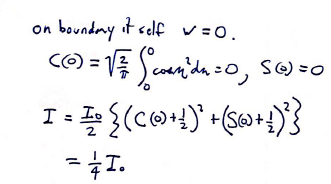 on boundary itself w=0.
C(0)=√(2/π) ∫₀⁰ cosn²dn=0, S(0)=0
I = I₀/2 {(C(0)+1/2)² + (S(0)+1/2)²}
= 1/4 I₀